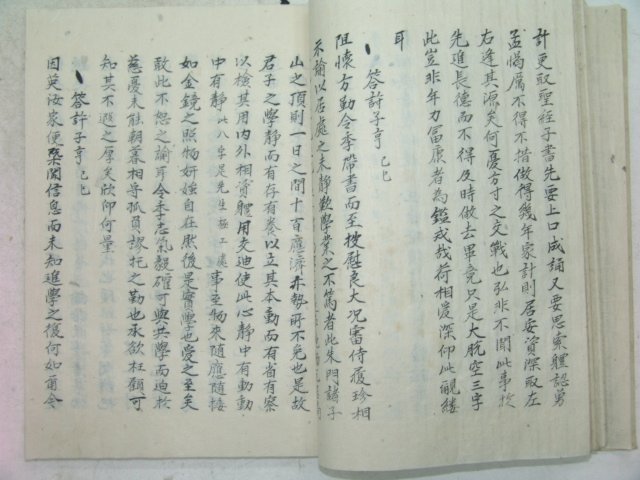 計更取聖經子書先要上口成誦又要思索體認勇
孟惕厲不得不措做得幾年家計則居安資深取左
右逢其源矣何憂方寸之交戰也弘非不聞此事於
先進長德而不得及時做去畢竟只是大脫空三字
此豈非年力富康者為鑑戒哉荷相愛深仰此覼縷
耳
答許子亨 己七
阻懷方勤令季帶書而至披慰良大况審侍履珍相
示諭以居處之未靜歎學業之不篤者此朱門諸子
山之頂則一日之間十百應濟亦勢所不免也是故
君子之學靜而有存有養以立其本動而有省有察
以檢其用內外相資體用夾迪使此心靜中有動動
中有靜此八字是先生極工處事至物來隨應隨接
如金鏡之照物妍媸自在然後是實學也愛之至矣
敢此不恕之諭耳令季志氣毅確可與共學而迫於
慈憂未能朝暮相導孤負謬托之勤也承欲枉顧可
知其不遐之厚矣欣仰何量
答許子亨 己七
因英汝家便槩聞信息而未知進學之復何如兩令